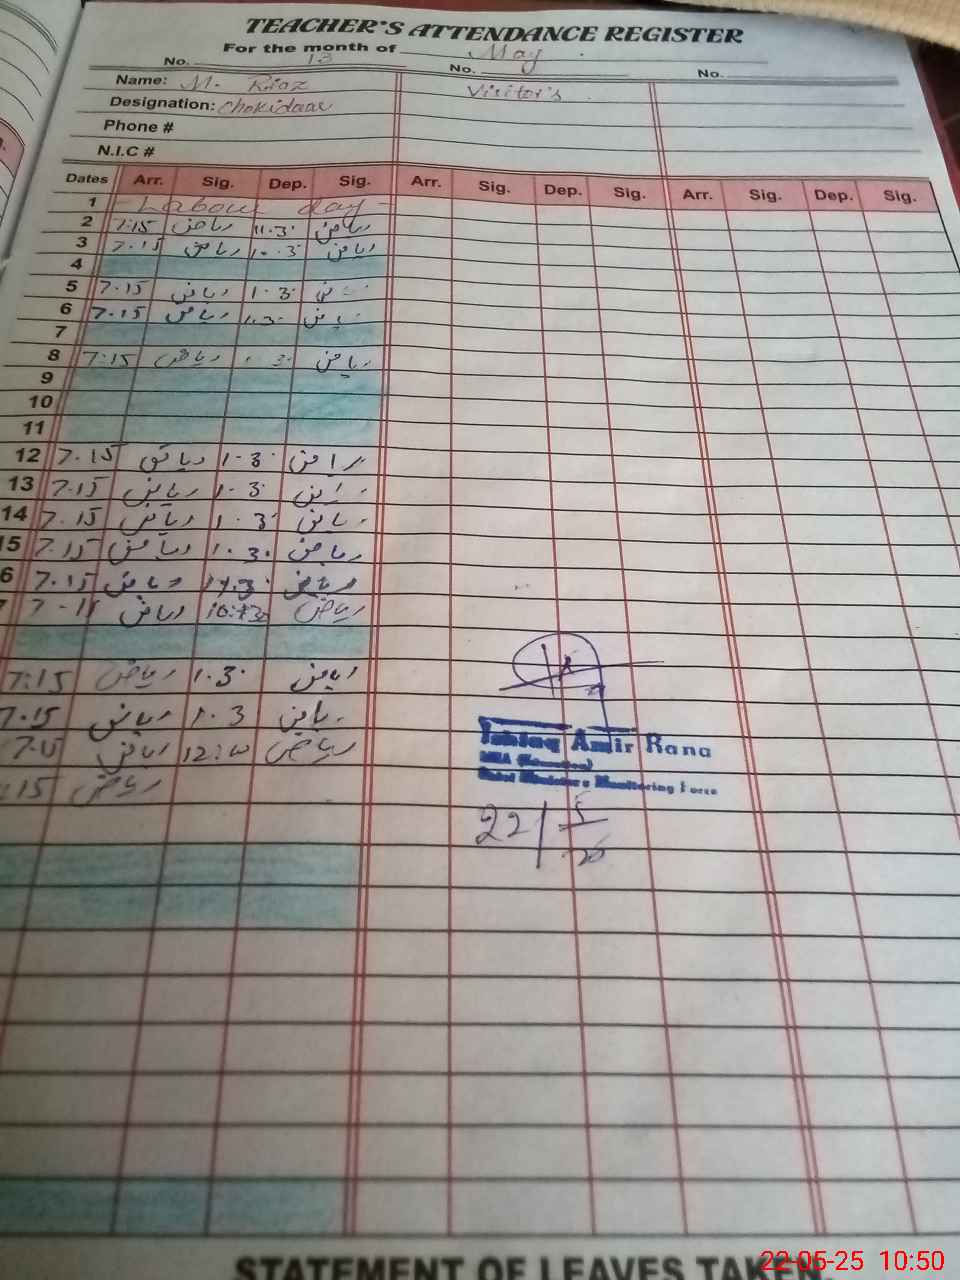 TEACHER'S ATTENDANCE REGISTER
For the month of May
No. 13 No. No.
Name: M. Riaz Visitor's
Designation: Chokidaar
Phone #
N.I.C #
Dates Arr. Sig. Dep. Sig. Arr. Sig. Dep. Sig. Arr. Sig. Dep. Sig.
1 - Labour day -
2 7:15 ریاض 11.30 ریاض
3 7.15 ریاض 1.30 ریاض
4
5 7.15 ریاض 1.30 ریاض
6 7.15 ریاض 1.30 ریاض
7
8 7:15 ریاض 1.30 ریاض
9
10
11
12 7.15 ریاض 1.30 ریاض
13 7.15 ریاض 1.30 ریاض
14 7.15 ریاض 1.30 ریاض
15 7.15 ریاض 1.30 ریاض
6 7.15 ریاض ریاض
7 ریاض ریاض
7:15 ریاض 1.30 ریاض
7.15 ریاض 1.30 ریاض
7.15 ریاض ریاض
:15 ریاض
Amir Rana
MEA (Education)
Monitoring Force
22/5/25
STATEMENT OF LEAVES TAKEN
22-05-25 10:50